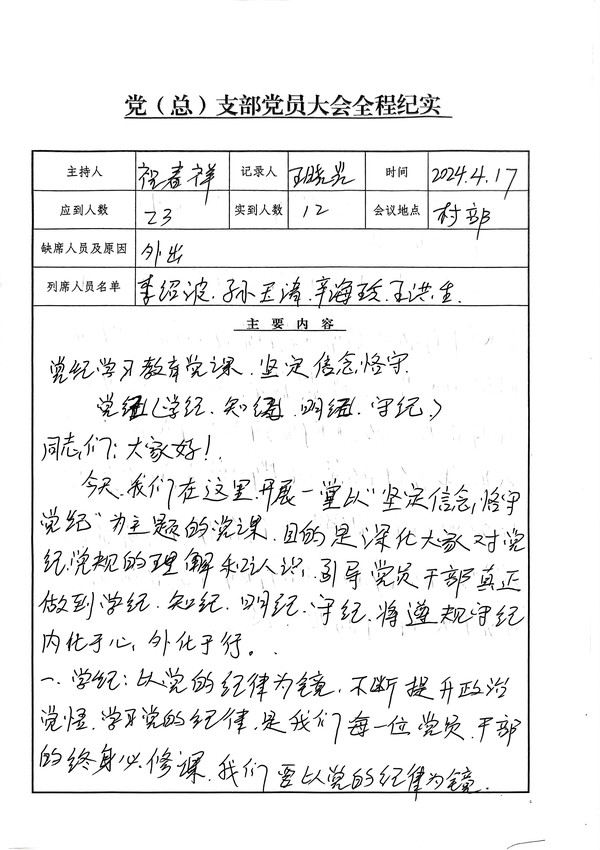 党（总）支部党员大会全程纪实
主持人 祝春祥 记录人 王晓光 时间 2024.4.17
应到人数 23 实到人数 12 会议地点 村部
缺席人员及原因 外出
列席人员名单 李绍波、孙玉涛、辛海 王洪生.
主要内容
党纪学习教育党课 坚定信念恪守
党纪(学纪、知纪、明纪、守纪、)
同志们：大家好！
今天、我们在这里开展一堂以“坚定信念，恪守
党纪”为主题的党课、目的是深化大家对党
纪党规的理解和认识，引导党员干部真正
做到学纪、知纪、明纪、守纪、将遵规守纪
内化于心，外化于行。
一、学纪：以党的纪律为镜、不断提升政治
觉悟、学习党的纪律、是我们每一位党员、干部
的终身必修课、我们要以党的纪律为镜.